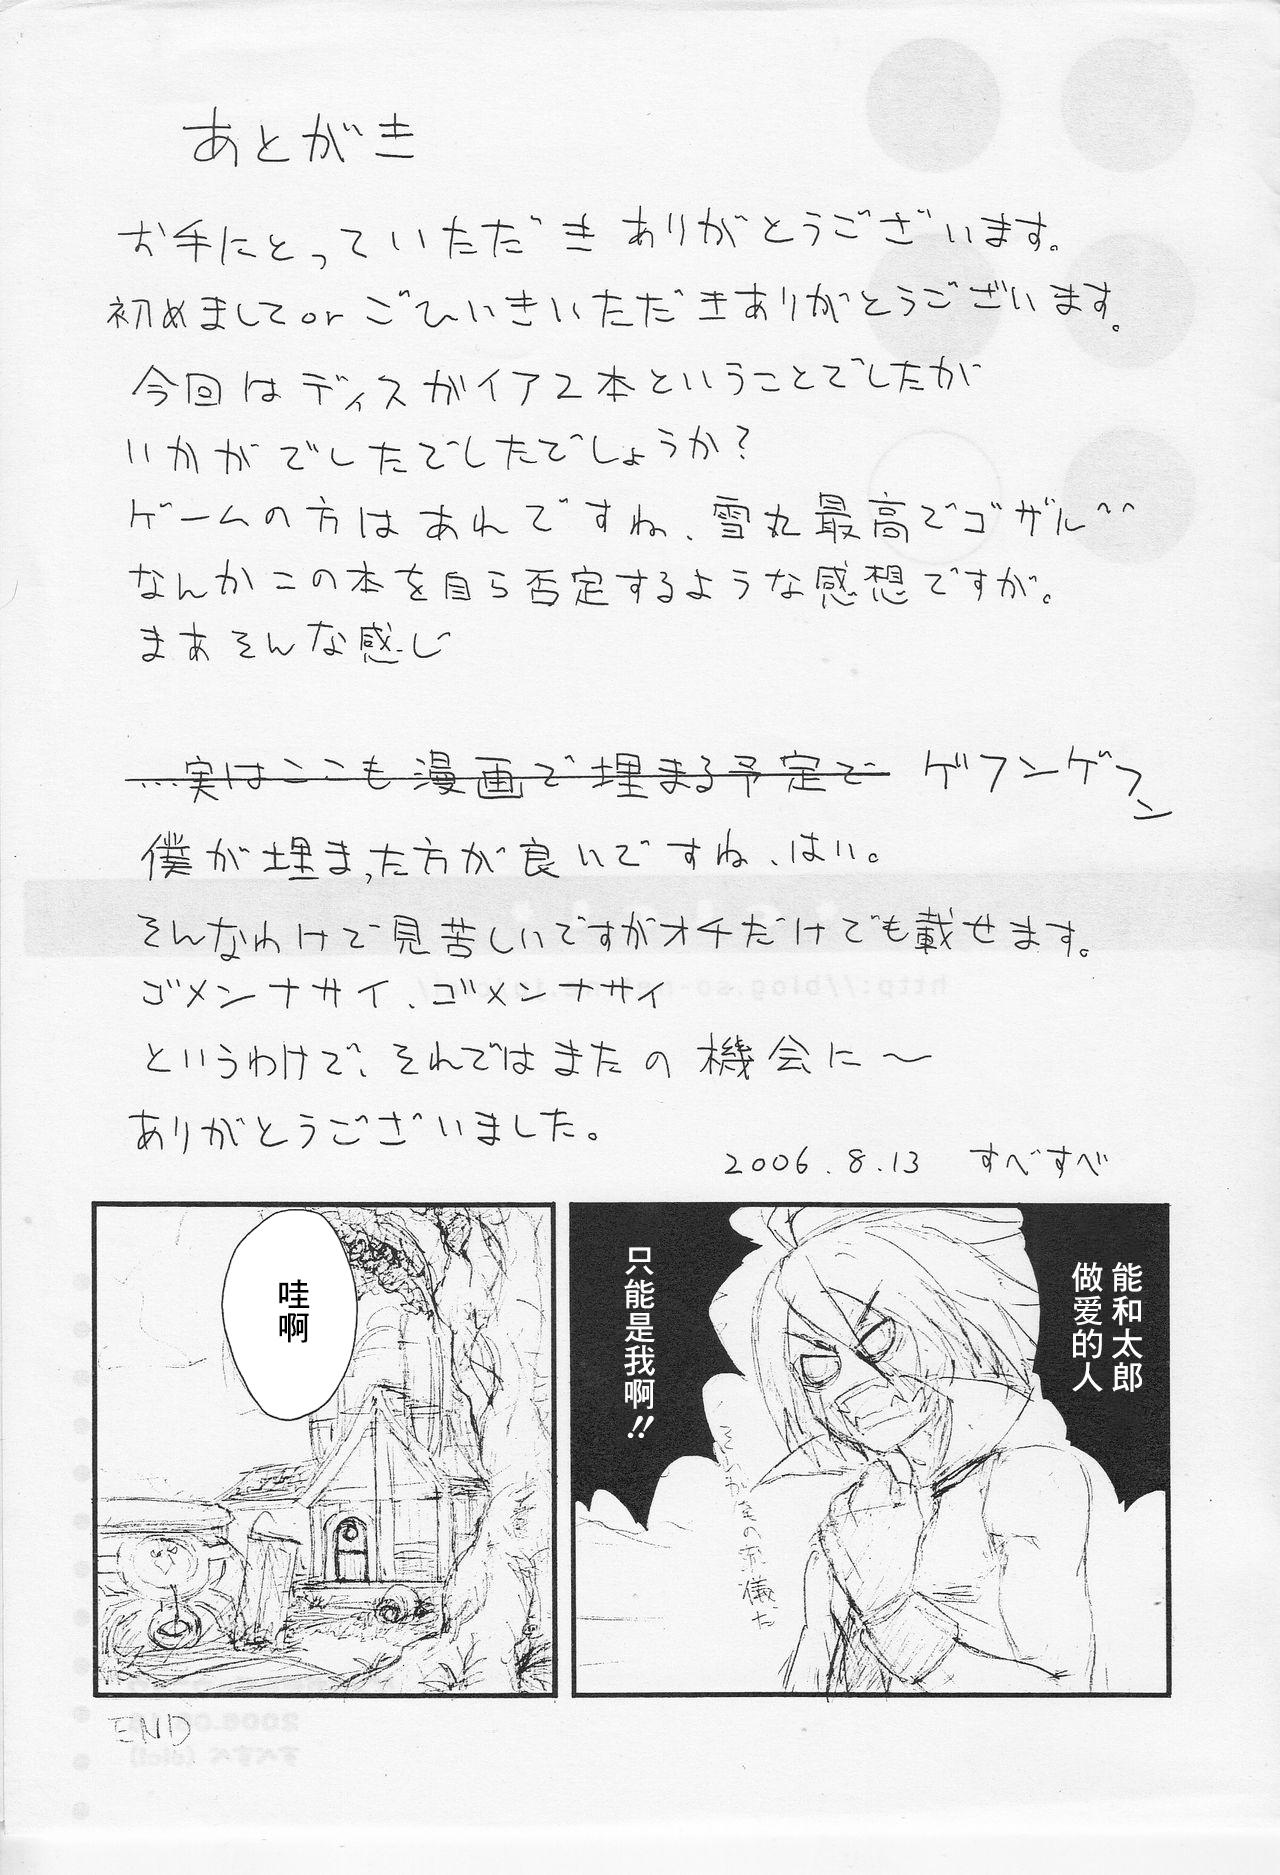 あとがき
お手にとっていただきありがとうございます。
初めましてorごひいきいただきありがとうございます。
今回はディスガイア2本ということでしたが
いかがでしたでしたでしょうか?
ゲームの方はあれですね、雪丸最高でゴザル^^
なんかこの本を自ら否定するような感想ですが。
まあそんな感じ
...実はここも漫画で埋まる予定で ゲフンゲフン
僕が埋まった方が良いですね、はい。
そんなわけで見苦しいですがオチだけでも載せます。
ゴメンナサイ、ゴメンナサイ
というわけで、それではまたの機会に〜
ありがとうございました。
2006.8.13 すべすべ
能和太郎
做爱的人
只能是我啊!!
哇啊
END